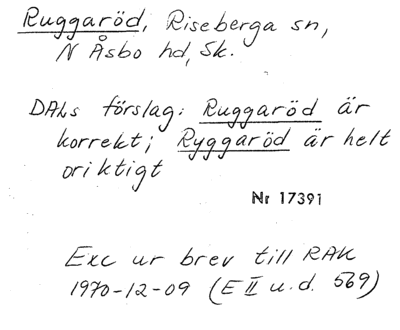 Ruggaröd, Riseberga sn,
N Åsbo hd, Sk.
DALs förslag: Ruggaröd är
korrekt; Ryggaröd är helt
oriktigt
Nr 17391
Exc ur brev till RAK
1970-12-09 (E II u.d. 569)